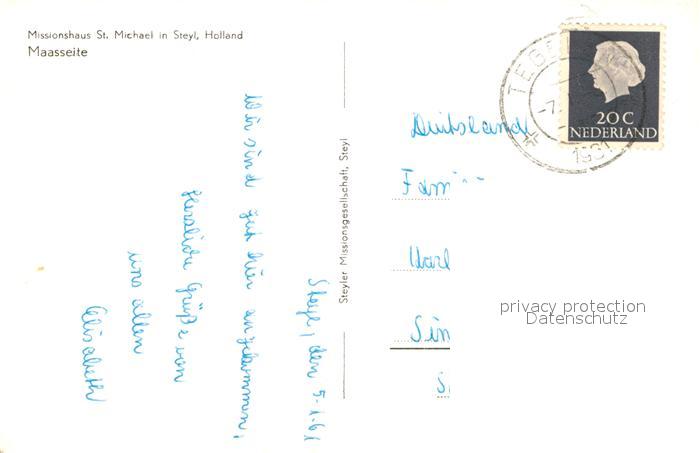 Missionshaus St. Michael in Steyl, Holland
Maasseite
Steyl, den 5.1.61
Wir sind gut hier angekommen,
Herzliche Grüße von
uns allen
Elisabeth
Steyler Missionsgesellschaft, Steyl
Deutschland
Fam
Karl
Sin
S
TEGE
-7.
1961
20 C
NEDERLAND
privacy protection
Datenschutz